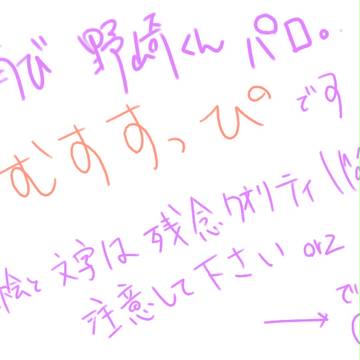 び 野崎くん パロ。
むすすっぴ です
絵と文字は 残念クオリティ
注意して下さい orz
→ で